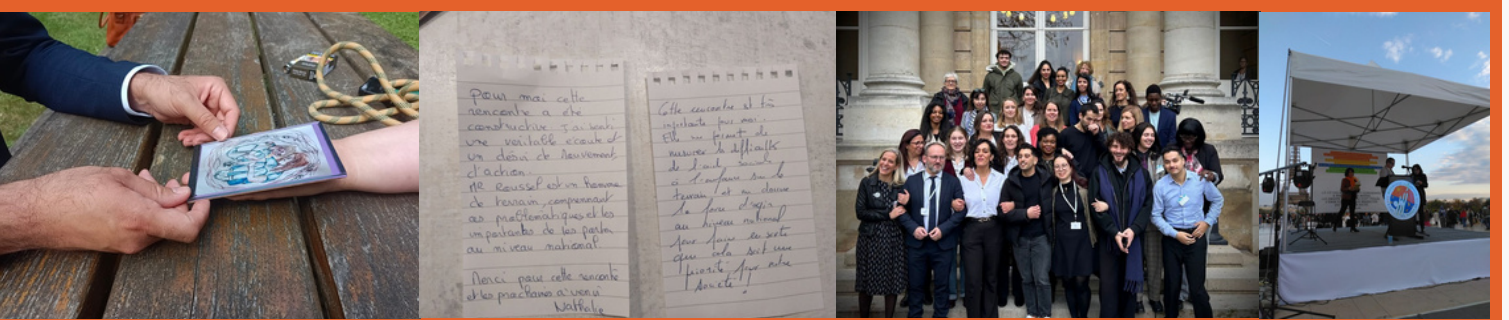 Pour moi cette
rencontre a été
constructive J'ai senti
une véritable écoute et
un désir de mouvement,
d'action.
Mr Roussel est un homme
de terrain, comprenant
les problématiques et les
importantes de les porter
au niveau national
Merci pour cette rencontre
et les prochaines à venir
Nathalie
Cette rencontre est très
importante pour moi.
Elle me permet de
mesurer la difficulté
de l'aide sociale
à l'enfance sur le
terrain et me donne
la force d'agir
au niveau national
pour faire en sorte
que cela soit une
priorité pour notre
société.